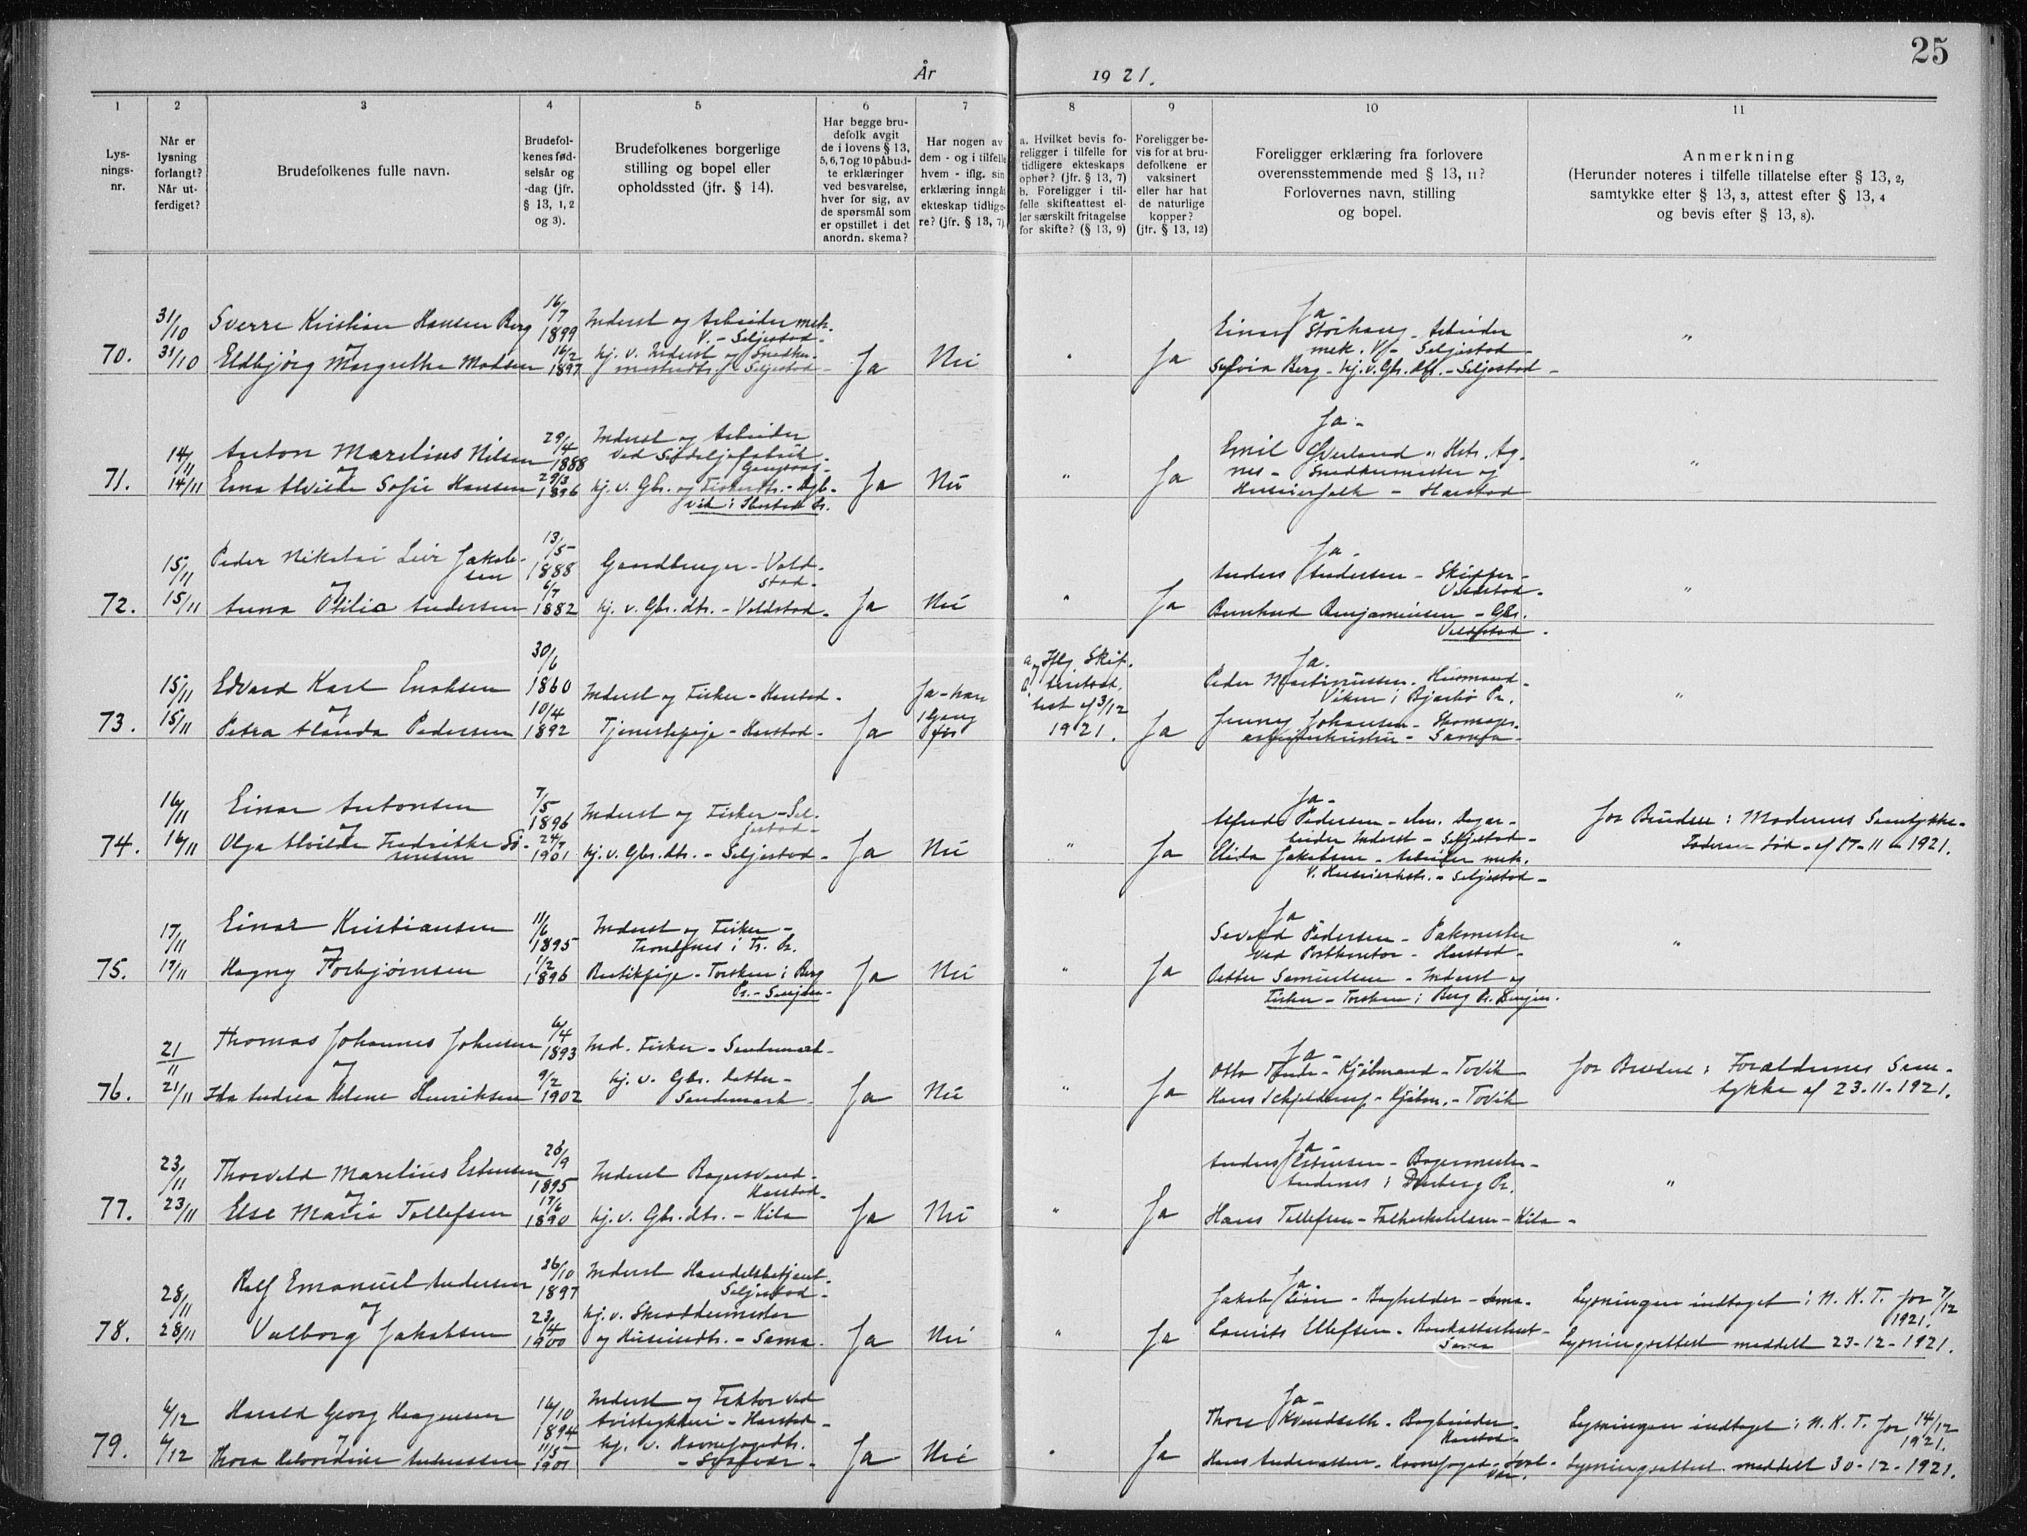 25
År 1921.
1 2 3 4 5 6 7 8 9 10 11
Lysnings-
nr.
Når er
lysning
forlangt?
Når ut-
ferdiget?
Brudefolkenes fulle navn.
Brudefol-
kenes fød-
selsår og
-dag (jfr.
§ 13, 1, 2
og 3).
Brudefolkenes borgerlige
stilling og bopel eller
opholdssted (jfr. § 14).
Har begge bru-
defolk avgit
de i lovens § 13,
5, 6, 7 og 10 påbud-
te erklæringer
ved besvarelse,
hver for sig, av
de spørsmål som
er opstillet i det
anordn. skema?
Har nogen av
dem - og i tilfelle
hvem - iflg. sin
erklæring inngått
ekteskap tidlige-
re? (jfr. § 13, 7)
a. Hvilket bevis fo-
religger i tilfelle for
tidligere ekteskaps
ophør? (jfr. § 13, 7)
b. Foreligger i til-
felle skifteattest el-
ler særskilt fritagelse
for skifte? (§ 13, 9)
Foreligger be-
vis for at bru-
defolkene er
vaksinert
eller har hat
de naturlige
kopper?
(jfr. § 13, 12)
Foreligger erklæring fra forlovere
overensstemmende med § 13, 11?
Forlovernes navn, stilling
og bopel.
Anmerkning
(Herunder noteres i tilfelle tillatelse efter § 13, 2,
samtykke efter § 13, 3, attest efter § 13, 4
og bevis efter § 13, 8).
70.
31/10
31/10
Sverre Kristian Hansen Berg
og
Eldbjørg Margrethe Madsen
16/7
1899
16/2
1897
Inderst og Arbeider mek.
V. - Seljestad -
hj. v. Inderst og Snedker-
mesterdtr. - Seljestad -
Ja
Nei
"
Ja
Ja
Einar Storhaug - Arbeider
mek. V. - Seljestad -
Sylvia Berg - hj. v. Gbr. dtr. - Seljestad -
"
71.
14/11
14/11
Anton Marelius Nilsen
og
Erna Alvilde Sofie Hansen
29/4
1888
29/3
1896
Inderst og Arbeider
ved Sildoljefabrik -
Gangsaas -
hj. v. Gbr. og Fiskerdtr. -
vik i Ibestad Pr.
Ja
Nei
"
Ja
Ja -
Emil Øverland & Hstr. Ag-
nes - Snedkermester og
Huseierfolk - Harstad
"
72.
15/11
15/11
Peder Nikolai Leir Jakob-
sen
og
Anna Otilia Andersen
13/5
1888
6/7
1882
Gaardbruger - Vold-
stad -
hj. v. Gbr. dtr. - Voldstad -
Ja
Nei
"
Ja
Ja -
Anders Andersen - Skipper -
Voldstad -
Bernhard Benjaminsen - Gbr.
Voldstad -
"
73.
15/11
15/11
Edvard Karl Enoksen
og
Petra Alanda Pedersen
30/6
1860
10/4
1892
Inderst og Fisker - Harstad -
Tjenestepige - Harstad -
Ja
Ja - han
1 Gang
før
Iflg. Skif-
teretsat-
test af 3/12
1921.
Ja
Ja.
Peder Martinussen, Husmand -
Viken i Bjarkø Pr.
Jenny Johansen - Skomager-
arbeiderhustru - Samaa -
"
74.
16/11
16/11
Einar Antonsen
og
Olga Alvilde Fredrikke Si-
monsen
7/5
1896
24/7
1901
Inderst og Fisker - Sel-
jestad -
hj. v. Gbr. dtr. - Seljestad -
Ja
Nei
"
Ja
Ja -
Alfred Pedersen - alm. Dagar-
beider Inderst - Seljestad -
Elida Jakobsen - Arbeider mek.
V. Huseierhstr. - Seljestad -
for Bruden: Moderens Samtykke -
Faderen død - af 17-11-1921.
75.
17/11
17/11
Einar Kristiansen
og
Hagny Torbjørnsen
11/6
1895
1/2
1896
Inderst og Fisker -
Trondenes i Tr. Pr.
Butikpige - Torsken i Berg
Pr. - Senjen -
Ja
Nei
"
Ja
Ja
Sivard Pedersen - Pakmester
ved Postkontor - Harstad -
Petter Samuelsen - Inderst og
Fisker - Torsken i Berg Pr. Senjen.
"
76.
21/11
21/11
Thomas Johannes Johnsen
og
Ida Andrea Helene Henriksen
6/4
1893
9/2
1902
Ind. Fisker - Sandmark -
hj. v. Gbr. datter -
Sandmark -
Ja
Nei
"
Ja
Ja -
Otto Tande - Kjøbmand - Tovik
Hans Schjelderup - Kjøbm. - Tovik
for Bruden: Forældrenes Sam-
tykke af 23-11-1921.
77.
23/11
23/11
Thorvald Marelius Estensen
og
Else Marie Tollefsen
26/9
1895
17/6
1890
Inderst Bagersvend -
Harstad -
hj. v. Gbr. dtr. - Kila
Ja
Nei
"
Ja
Ja -
Anders Estensen - Bagermester -
Andenes i Dverberg Pr.
Hans Tollefsen - Folkeskolelærer - Kila -
"
78.
28/11
28/11
Rolf Emanuel Andersen
og
Valborg Jakobsen
26/10
1897
23/4
1900
Inderst Handelsbetjent -
Seljestad -
hj. v. Skreddermester
og Huseierdtr. - Sama.
Ja
Nei
"
Ja
Ja -
Jakob Lian - Bogholder - Sama -
Laurits Ellefsen -
Sama
Lysningen indtaget i N. K. T. for 7/12
1921.
Lysningsattest meddelt 23-12-1921.
79.
6/12
6/12
Harald Georg Haagensen
og
Thora Andreassen
16/10
1894
11/5
1901
Inderst og Faktor ved
Avistrykkeri - Harstad -
hj. v. Havnefogeddtr.
- Svolvær -
Ja
Nei
"
Ja
Ja -
Thore Kvendseth - Bogbinder -
Harstad -
Hans Andreassen - Havnefoged - Svol-
vær.
Lysningen indtaget i N. K. T. for 14/12
1921.
Lysningsattest meddelt 30-12-1921.